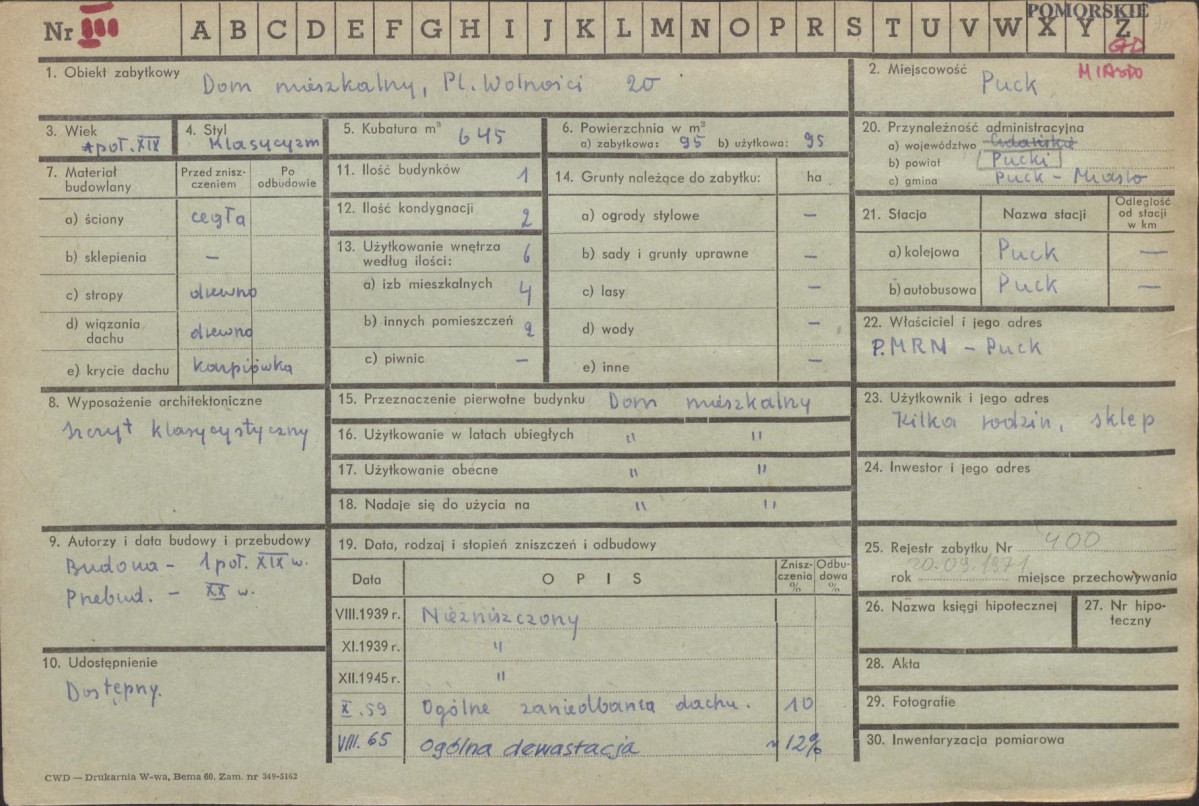 POMORSKIE
Nr A B C D E F G H I J K L M N O P R S T U V W X Y Z
GD
MIASTO
1. Obiekt zabytkowy Dom mieszkalny, Pl. Wolności 20
2. Miejscowość Puck
3. Wiek 1 poł. XIX
4. Styl Klasycyzm
5. Kubatura m³ 645
6. Powierzchnia w m²
a) zabytkowa: 95 b) użytkowa: 95
20. Przynależność administracyjna
a) województwo Gdańskie
b) powiat Pucki
c) gmina Puck - Miasto
7. Materiał budowlany
Przed zniszczeniem
Po odbudowie
a) ściany cegła
b) sklepienia —
c) stropy drewno
d) wiązania dachu drewno
e) krycie dachu karpiówka
11. Ilość budynków 1
12. Ilość kondygnacji 2
13. Użytkowanie wnętrza według ilości: 6
a) izb mieszkalnych 4
b) innych pomieszczeń 2
c) piwnic —
14. Grunty należące do zabytku: ha
a) ogrody stylowe —
b) sady i grunty uprawne —
c) lasy —
d) wody —
e) inne —
21. Stacja Nazwa stacji Odległość od stacji w km
a) kolejowa Puck —
b) autobusowa Puck —
22. Właściciel i jego adres
P.MRN - Puck
8. Wyposażenie architektoniczne
szczyt klasycystyczny
15. Przeznaczenie pierwotne budynku Dom mieszkalny
16. Użytkowanie w latach ubiegłych " "
17. Użytkowanie obecne " "
18. Nadaje się do użycia na " "
23. Użytkownik i jego adres
Kilka rodzin, sklep
24. Inwestor i jego adres
9. Autorzy i data budowy i przebudowy
Budowa - 1 poł. XIX w.
Przebud. - XX w.
10. Udostępnienie
Dostępny.
19. Data, rodzaj i stopień zniszczeń i odbudowy
Data OPIS Zniszczenia % Odbudowa %
VIII.1939 r. Niezniszczony
XI.1939 r. "
XII.1945 r. "
X.59 Ogólne zaniedbania dachu. 10
VIII.65 Ogólna dewastacja ~12%
25. Rejestr zabytku Nr 400
rok 20.09.1971 miejsce przechowywania
26. Nazwa księgi hipotecznej
27. Nr hipoteczny
28. Akta
29. Fotografie
30. Inwentaryzacja pomiarowa
CWD — Drukarnia W-wa, Bema 60. Zam. nr 349-5162